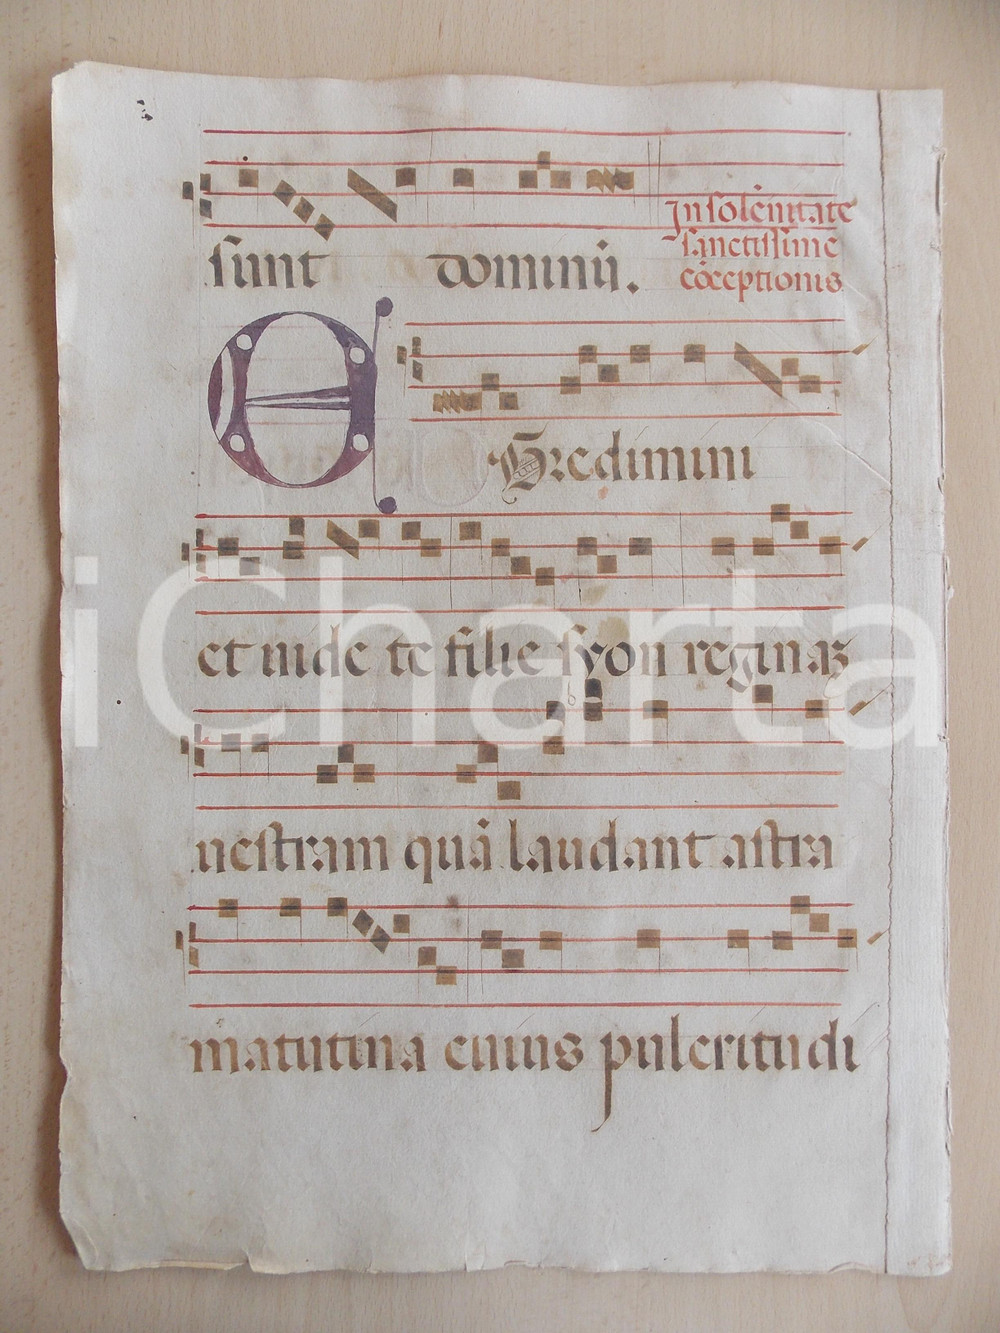 In solēnitate
sanctissime
cōceptionis
sunt domini.
EGredimini
et uide te filie syon reginaz
uestram quā laudant astra
matutina cuius pulcritudi
iCharta